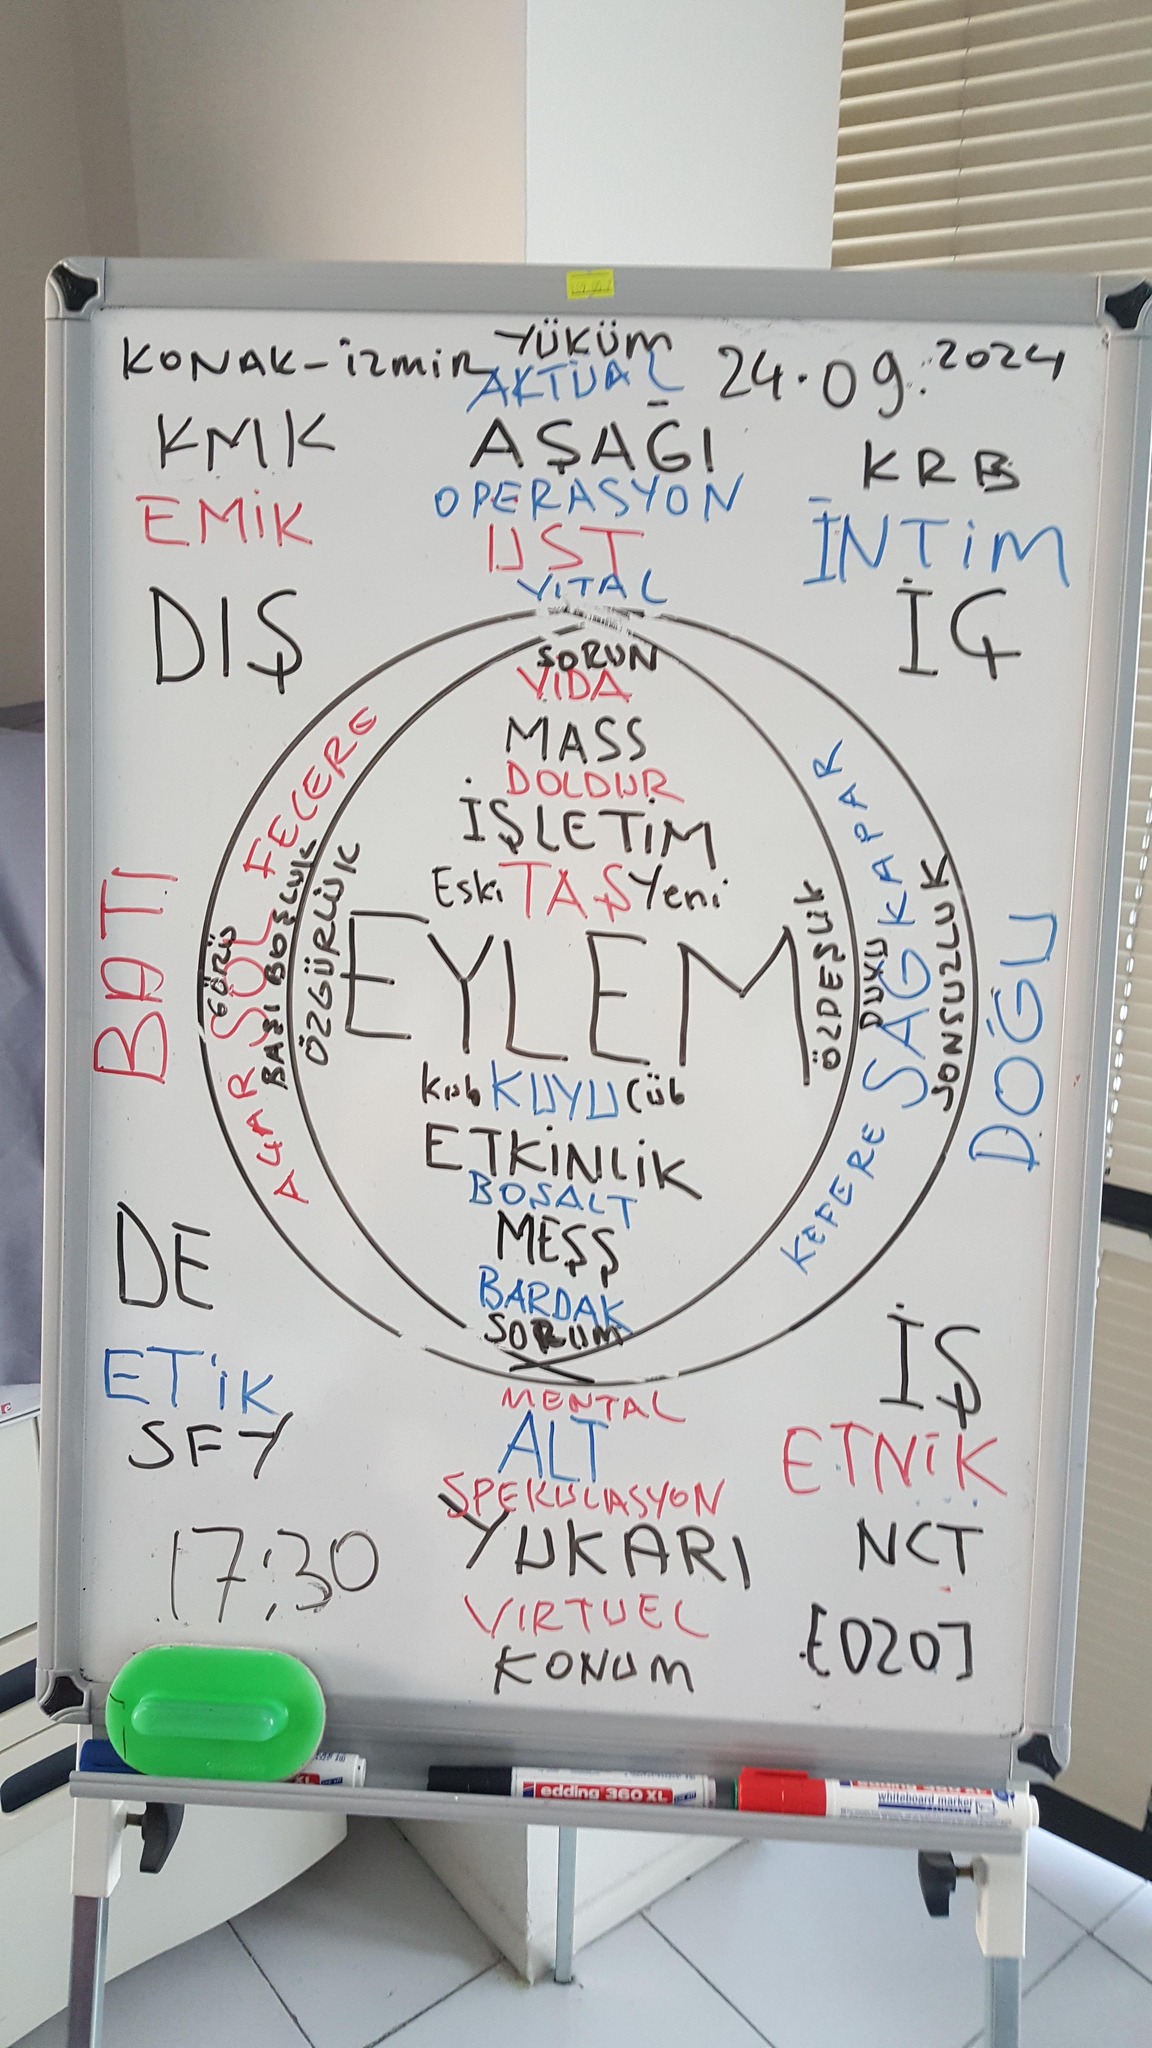 KONAK-İZMİR
YÜKÜM
24.09.2024
AKTÜAL
KMK
AŞAĞI
KRB
EMİK
OPERASYON
İNTİM
ÜST
VİTAL
DIŞ
İÇ
SORUN
VİDA
MASS
DOLDUR
İŞLETİM
Eski TAŞ Yeni
EYLEM
Kub KUYU Cüb
ETKİNLİK
BOŞALT
MEŞŞ
BARDAK
SORUM
BATI
GÖRÜ
AÇAR SOL FECERE
BAŞI BOŞLUK
ÖZGÜRLÜK
ÖZDEŞLİK
DUYU
KEFERE SAĞ KAPAR
SONSUZLUK
DOĞU
DE
İŞ
ETİK
MENTAL
SFY
ALT
ETNİK
SPEKÜLASYON
17:30
YUKARI
NCT
VİRTUEL
[020]
KONUM
edding 360 XL
edding 360 XL
whiteboard marker